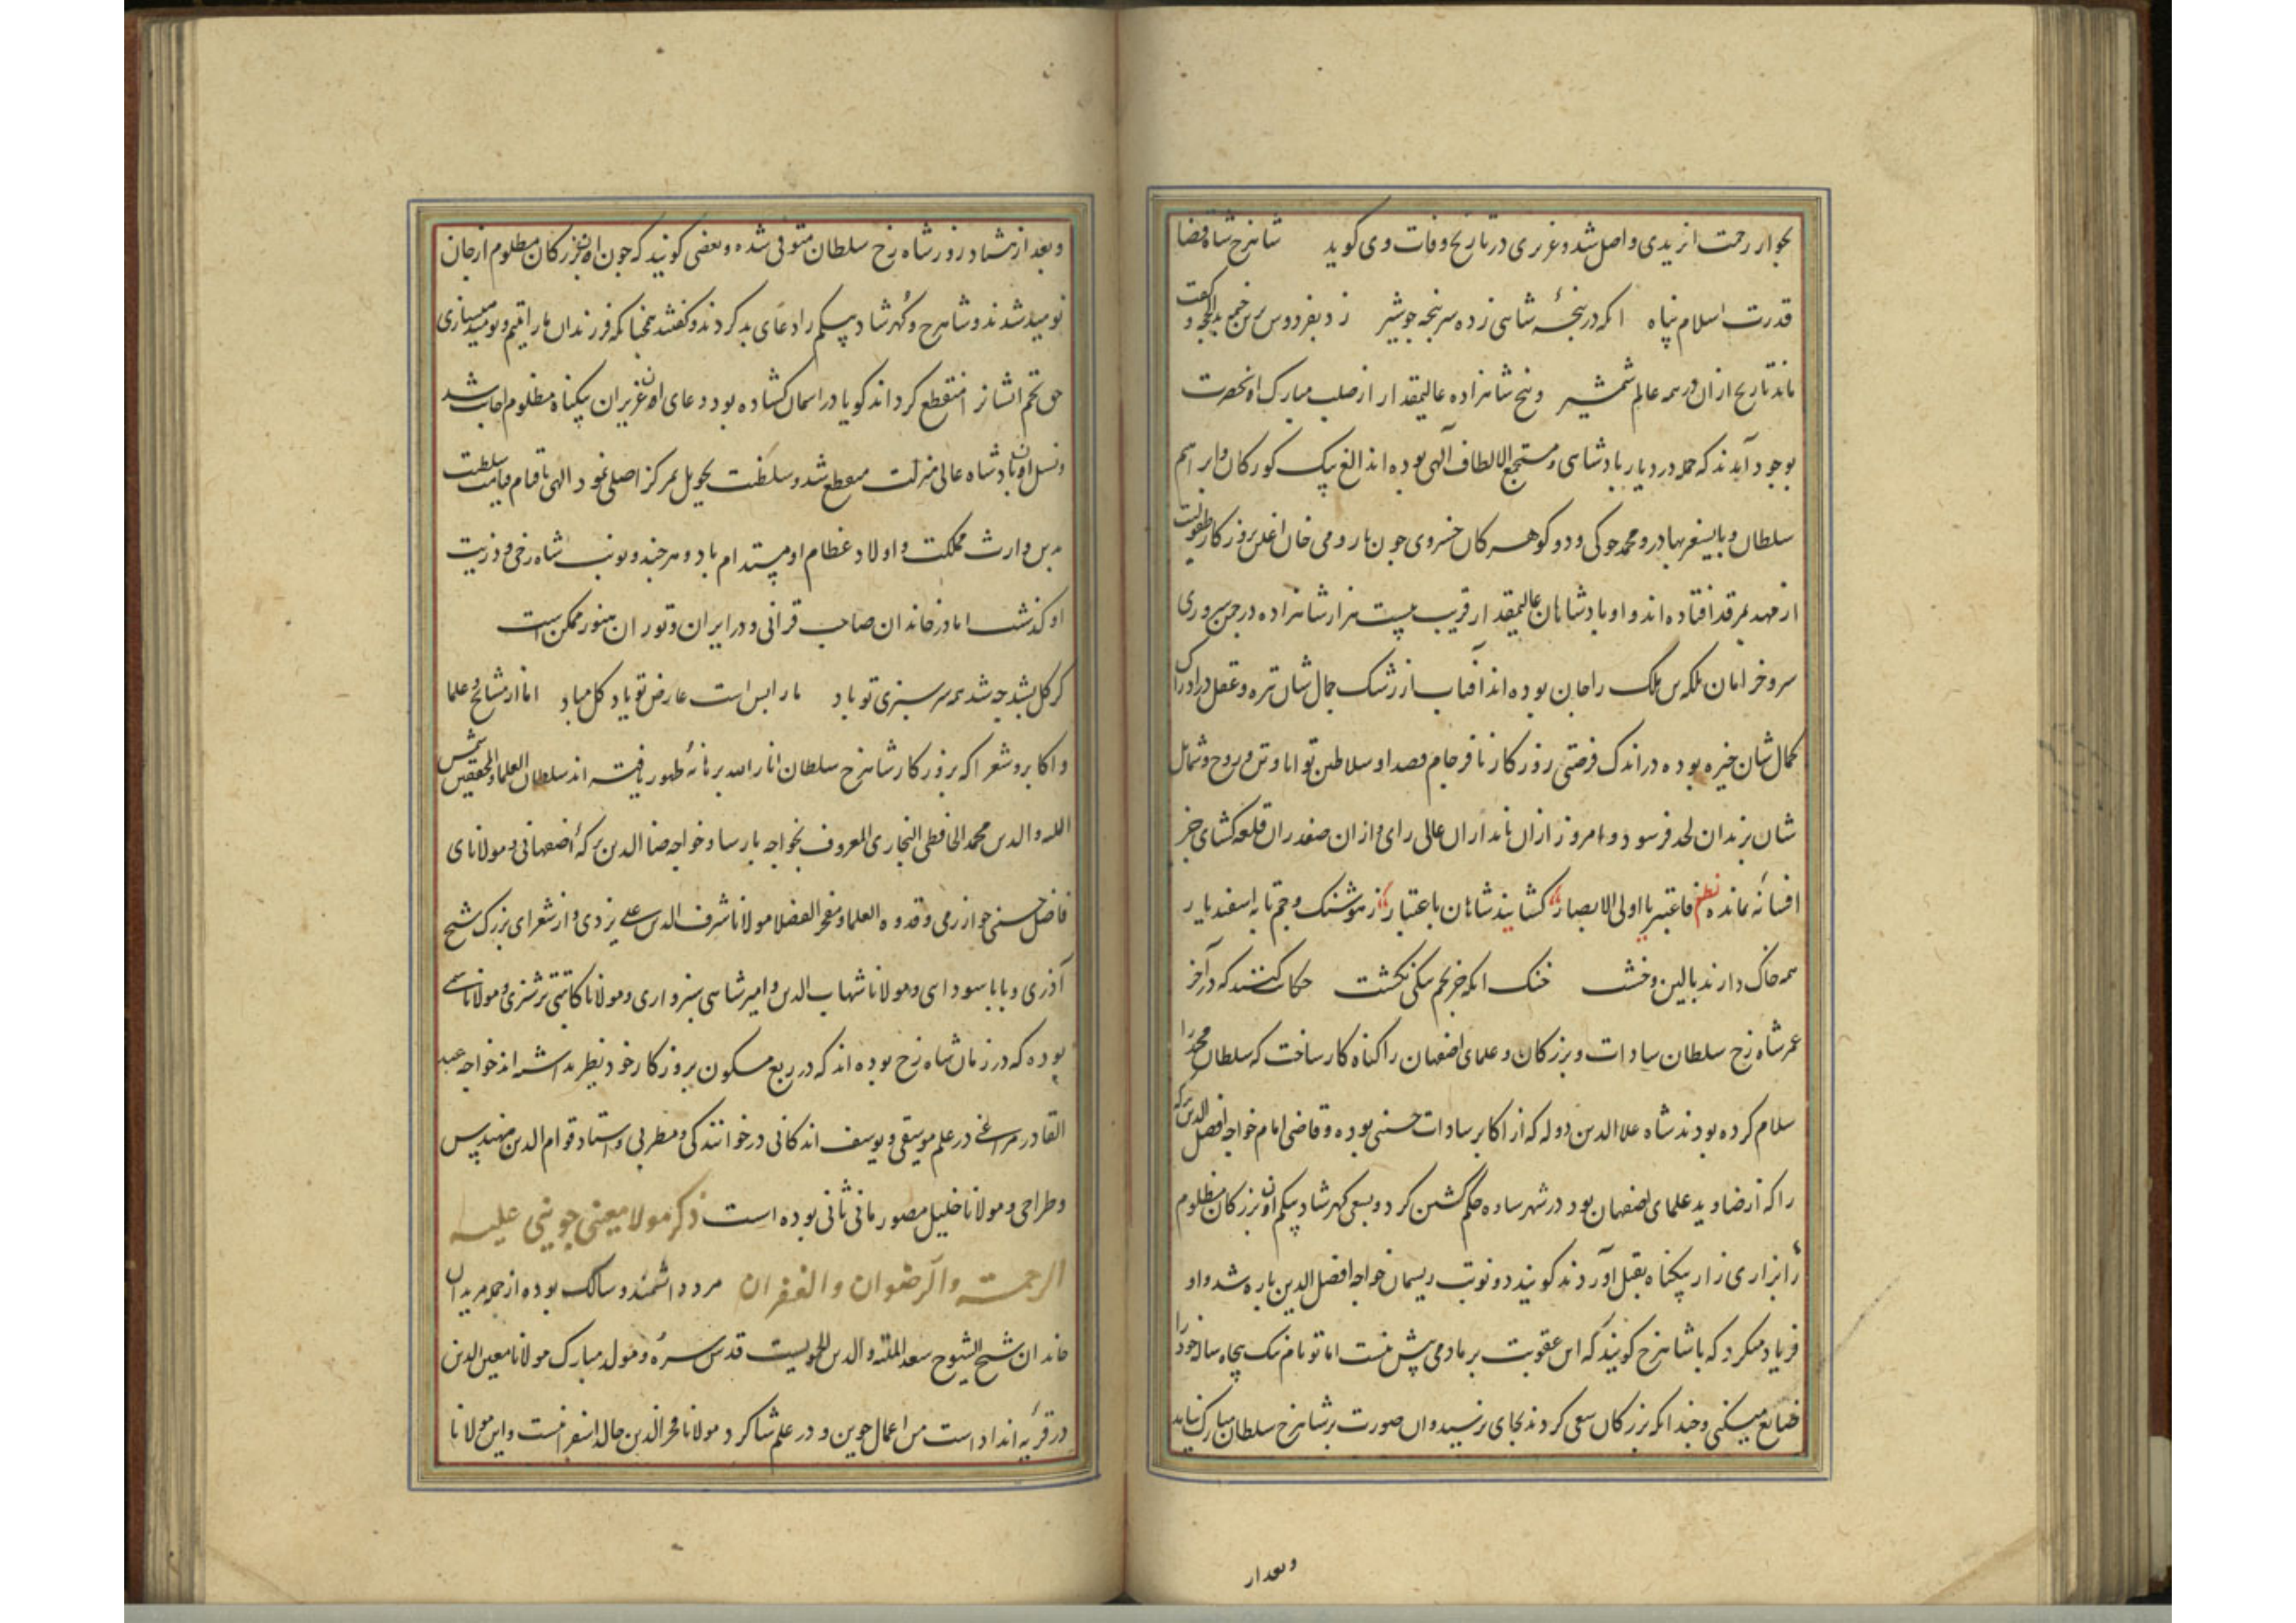 بجوار رحمت ایزدی واصل شد و عزیزی در تاریخ وفات وی کوید شاهرخ شاه قضا
قدرت اسلام پناه انکه در پنجهٔ شاهی زده سرپنجه جو شیر زد بفردوس برین خیمه
ماند تاریخ ازان در همه عالم شمشیر و پنج شاهزاده عالیمقدار از صلب مبارک انحضرت
بوجود آمدند که جمله در دیار بادشاهی و مستجمع الالطاف آلهی بوده اند الغ بیک کورکان و ابراهیم
سلطان و بایسنغر بهادر و محمد جوکی و دو کوهر کان خسروی جون بارومی خان اغلن بروزکار طفولیت
از مهد بمرقد افتاده اند و او بادشاهان عالیمقدار قریب بیست هزار شاهزاده در جمن سروری
سرو خرامان بلکه بس ملک راجان بوده اند آفتاب از رشک جمال شان تیره و عقل در ادراک
کمال شان خیره بوده در اندک فرصتی روزکار نافرجام قصد او سلاطین توانا و تن و روح و شمایل
شان بزندان لحد فرسود و امروز ازان نامداران عالی رای و ازان صفدران قلعه کشای جز
افسانه نمانده نظم فاعتبر یا اولی الابصار کشایند شاهان با عتبار ز هوشنک و جم تا به اسفندیار
همه خاک دارند بالین و خشت خنک انکه جز تخم نیکی نکشت حکایت کنند که در آخر
عمر شاه رخ سلطان سادات و بزرکان و علمای اصفهان را کناه کار ساخت که سلطان محمد را
سلام کرده بودند شاه علا الدین دوله که از اکابر سادات حسنی بوده و قاضی امام خواجه افضل الدین ترکه
را که از ضاوید علمای اصفهان بود در شهر ساوه حکم کشتن کرد و بسعی کهرشاد بیکم اون بزرکان مظلوم
را بزاری زار بیکناه بقتل آوردند کویند دو نوبت ریسمان خواجه افضل الدین باره شد و او
فریاد میکرد که با شاهرخ کویند که این عقوبت بر ما دمی بیش نیست اما تو نام نیک پنجاه ساله خود را
ضایع میکنی و جندانکه بزرکان سعی کردند بجای نرسید و ان صورت بر شاهرخ سلطان مبارک نیامد
وبعد از
وبعد از هشتاد روز شاه رخ سلطان متوفی شده و بعضی کویند که جون اون بزرکان مظلوم از جان
نومید شدند و شاهرخ و کهرشاد بیکم را دعای بد کردند و کفتند همجنانکه فرزندان ما را یتیم و نومید میسازی
حق تخم ایشانرا منقطع کرداند کویا در اسمان کشاده بود و دعای اون عزیزان بیکناه مظلوم اجابت شد
و نسل اون بادشاه عالی منزلت منقطع شد و سلطنت بحویل بمرکز اصلی نمود الهی تا قیام قیامت سلطنت
بدین وارث مملکت و اولاد عظام او مستدام باد و هرجند و نوبت شاه رخی و ذریت
او کذشت اما در خاندان صاحب قرانی و در ایران و توران هنوز ممکن است
کر کل بشد جه شد همه سرسبزی تو باد ما را بس است عارض تو یاد کل مباد اما از مشایخ و علما
و اکابر و شعرا که بروزکار شاهرخ سلطان انار الله برهانه ظهور یافته اند سلطان العلما و المحققین شمس
الملة والدین محمد الحافظی البخاری المعروف بخواجه بارسا و خواجه صاین الدین ترکهٔ اصفهانی و مولانای
فاضل حسین خوارزمی و قدوه العلما و مفخر الفضلا مولانا شرف الدین علی یزدی و از شعرای بزرک شیخ
آذری و بابا سودایی و مولانا شهاب الدین و امیر شاهی سبزواری و مولانا کاتبی ترشیزی و مولانا
بوده که در زمان شاه رخ بوده اند که در ربع مسکون بروزکار خود نظیر نداشته اند خواجه عبد
القادر مراغی در علم موسیقی و یوسف اندکانی در خوانندکی و مطربی و استاد قوام الدین مهندس
و طراحی و مولانا خلیل مصور مانی ثانی بوده است ذکر مولا معینی جوینی علیه
الرحمة والرضوان والغفران مرد دانشمند و سالک بوده از جمله مریدان
خاندان شیخ الشیوخ سعد الملة والدین الحموییست قدس سره و مولد مبارک مولانا معین الدین
در قریه انداد است من اعمال جوین و در علم شاکرد مولانا فخر الدین خالد اسفراینست و این مولانا